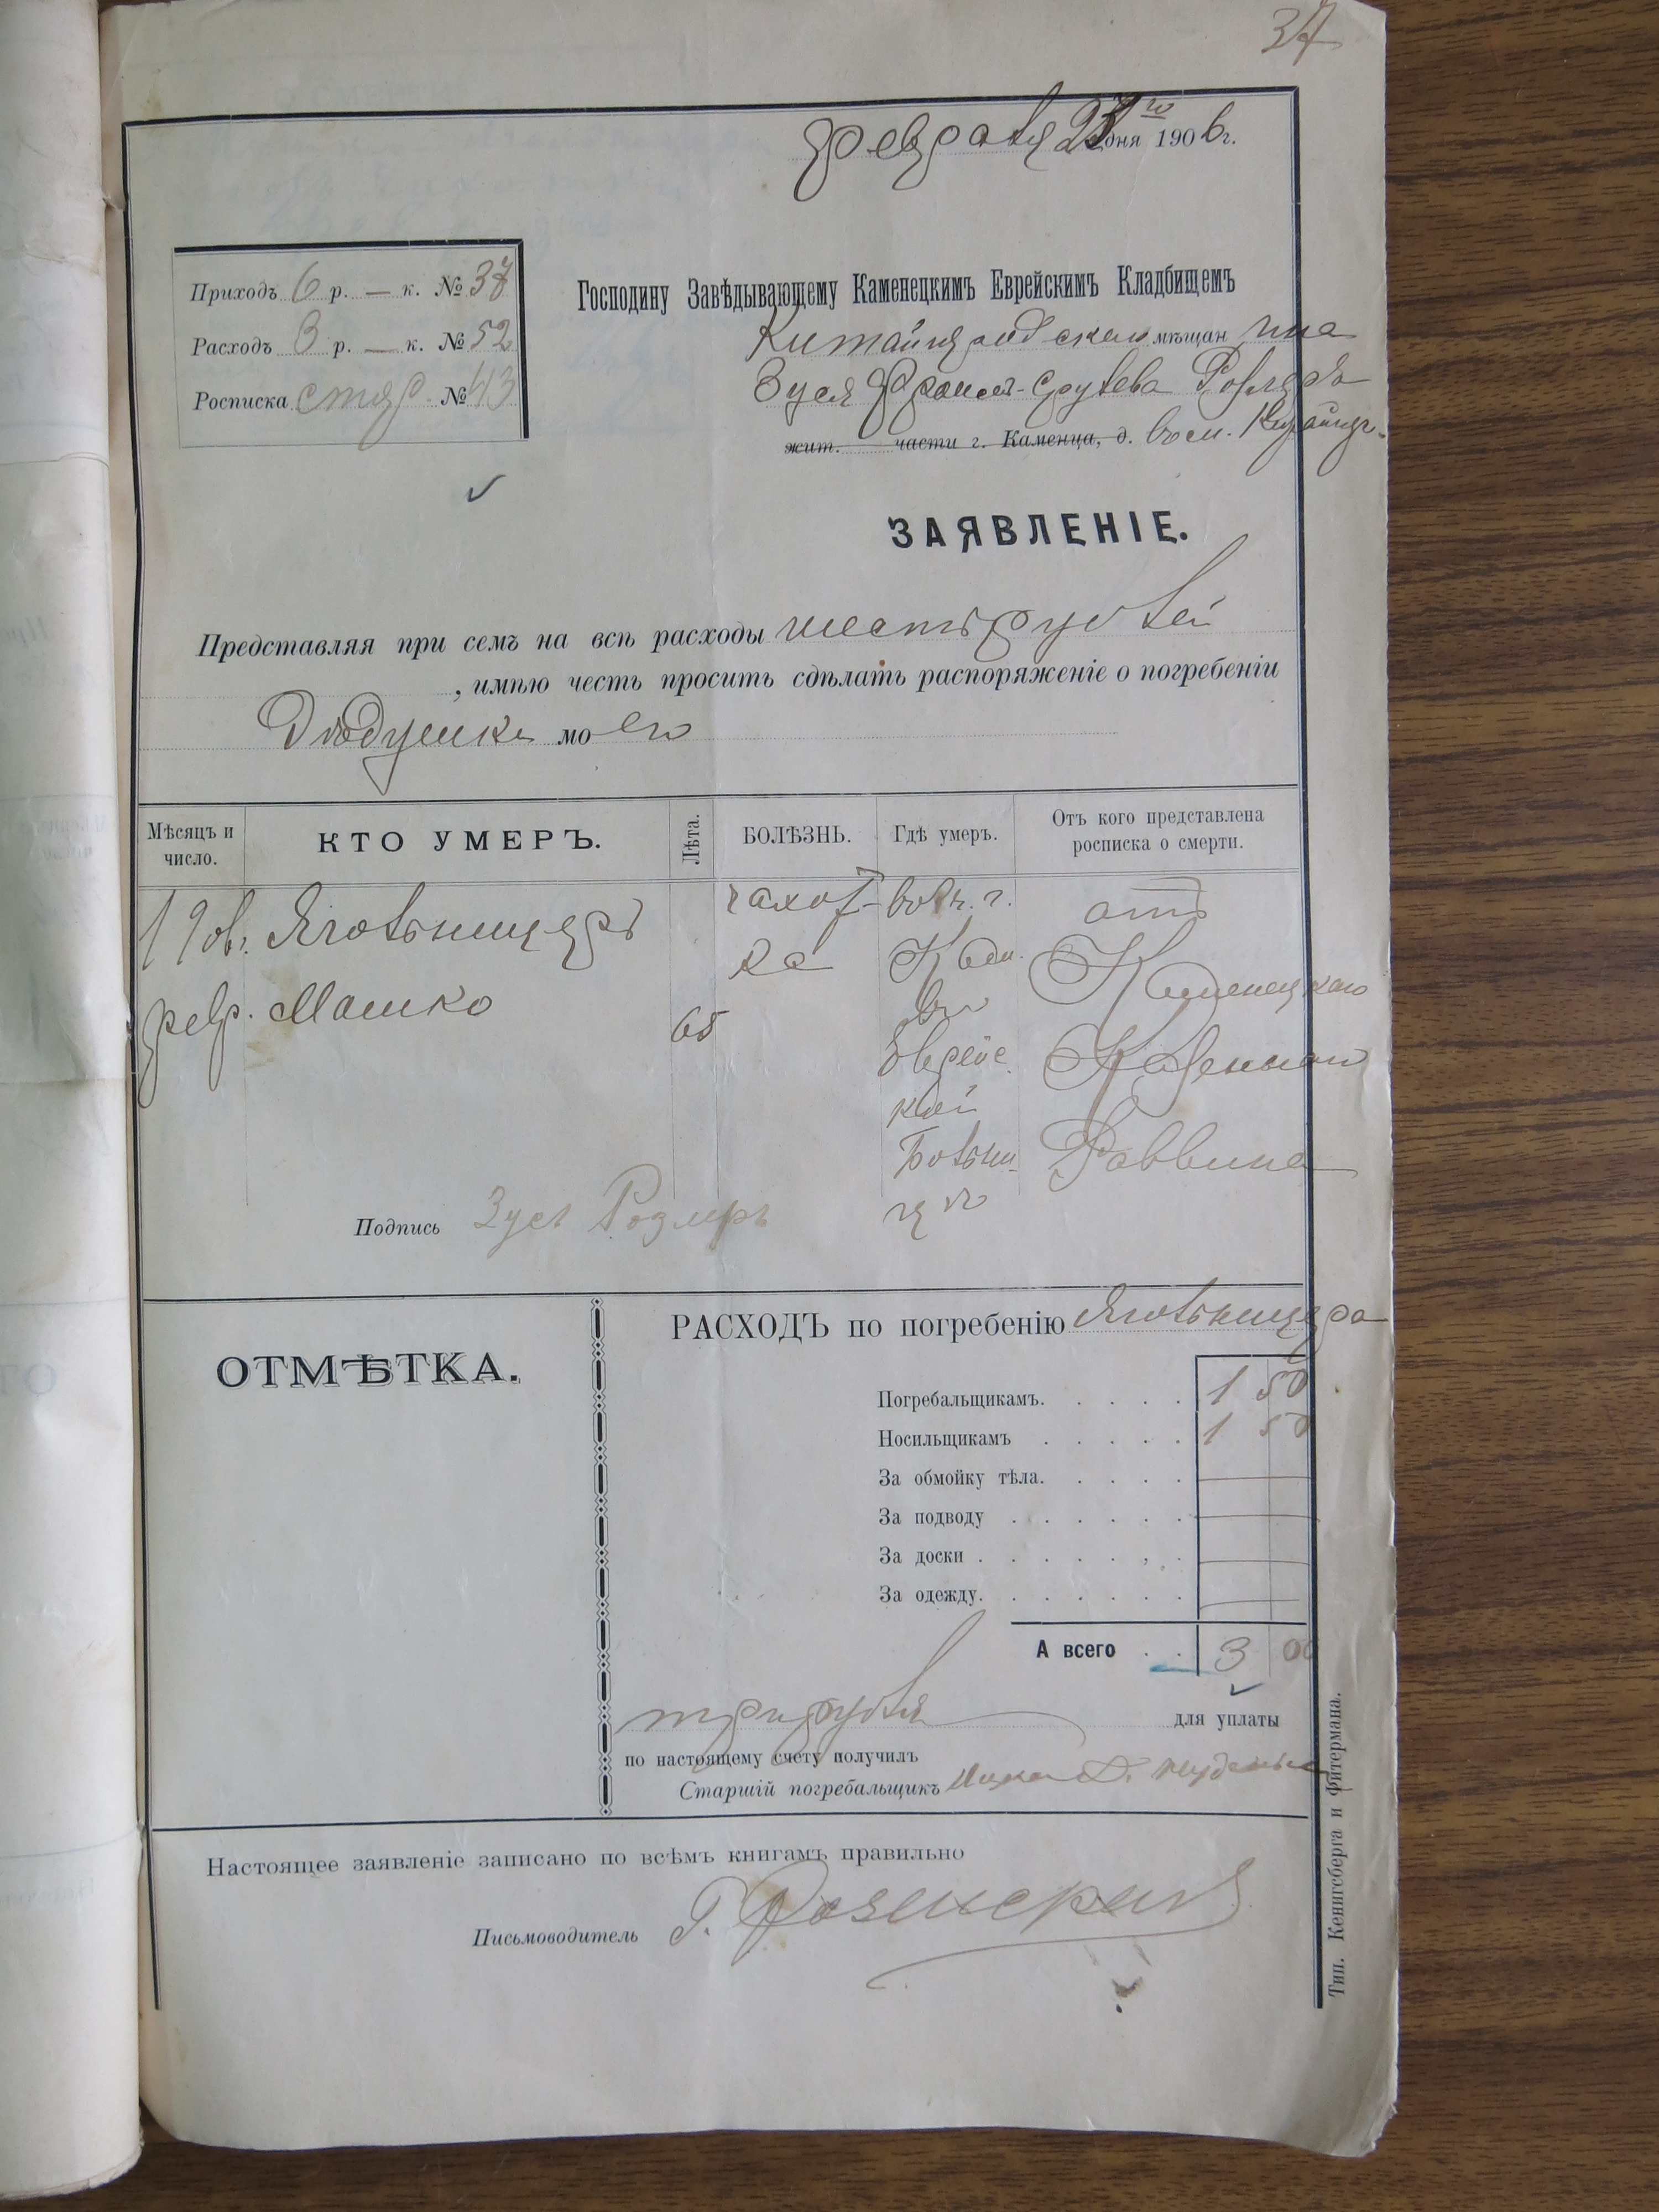 37
февраля дня 1906 г.
Приходъ 6 р. — к. № 37
Расходъ 3 р. — к. № 52
Росписка стар. № 43
Господину Завѣдывающему Каменецкимъ Еврейскимъ Кладбищемъ
Китайгородскаго мѣщанина
Зуся
жит. части г. Каменца, д. въ м. Китайг.
ЗАЯВЛЕНІЕ.
Представляя при семъ на всѣ расходы шесть рублей
, имѣю честь просить сдѣлать распоряженіе о погребеніи
Дѣдушки моего
Мѣсяцъ и число.
КТО УМЕРЪ.
Лѣта.
БОЛѢЗНЬ.
Гдѣ умеръ.
Отъ кого представлена росписка о смерти.
19
февр.
Ягольницеръ
Машко
65
чахот-
ка
въ г.
Кам.
въ
Еврейс
кой
Больни-
цѣ
отъ
Каменецкаго
Казеннаго
Раввина
Подпись Зусь
ОТМѢТКА.
РАСХОДЪ по погребенію Ягольницера
Погребальщикамъ. 1 50
Носильщикамъ 1 50
За обмойку тѣла. —
За подводу —
За доски —
За одежду. —
А всего 3 00
три рубля для уплаты
по настоящему счету получилъ
Старшій погребальщикъ
Настоящее заявленіе записано по всѣмъ книгамъ правильно
Письмоводитель Г.
Тип. Кенигсберга и Фитермана.